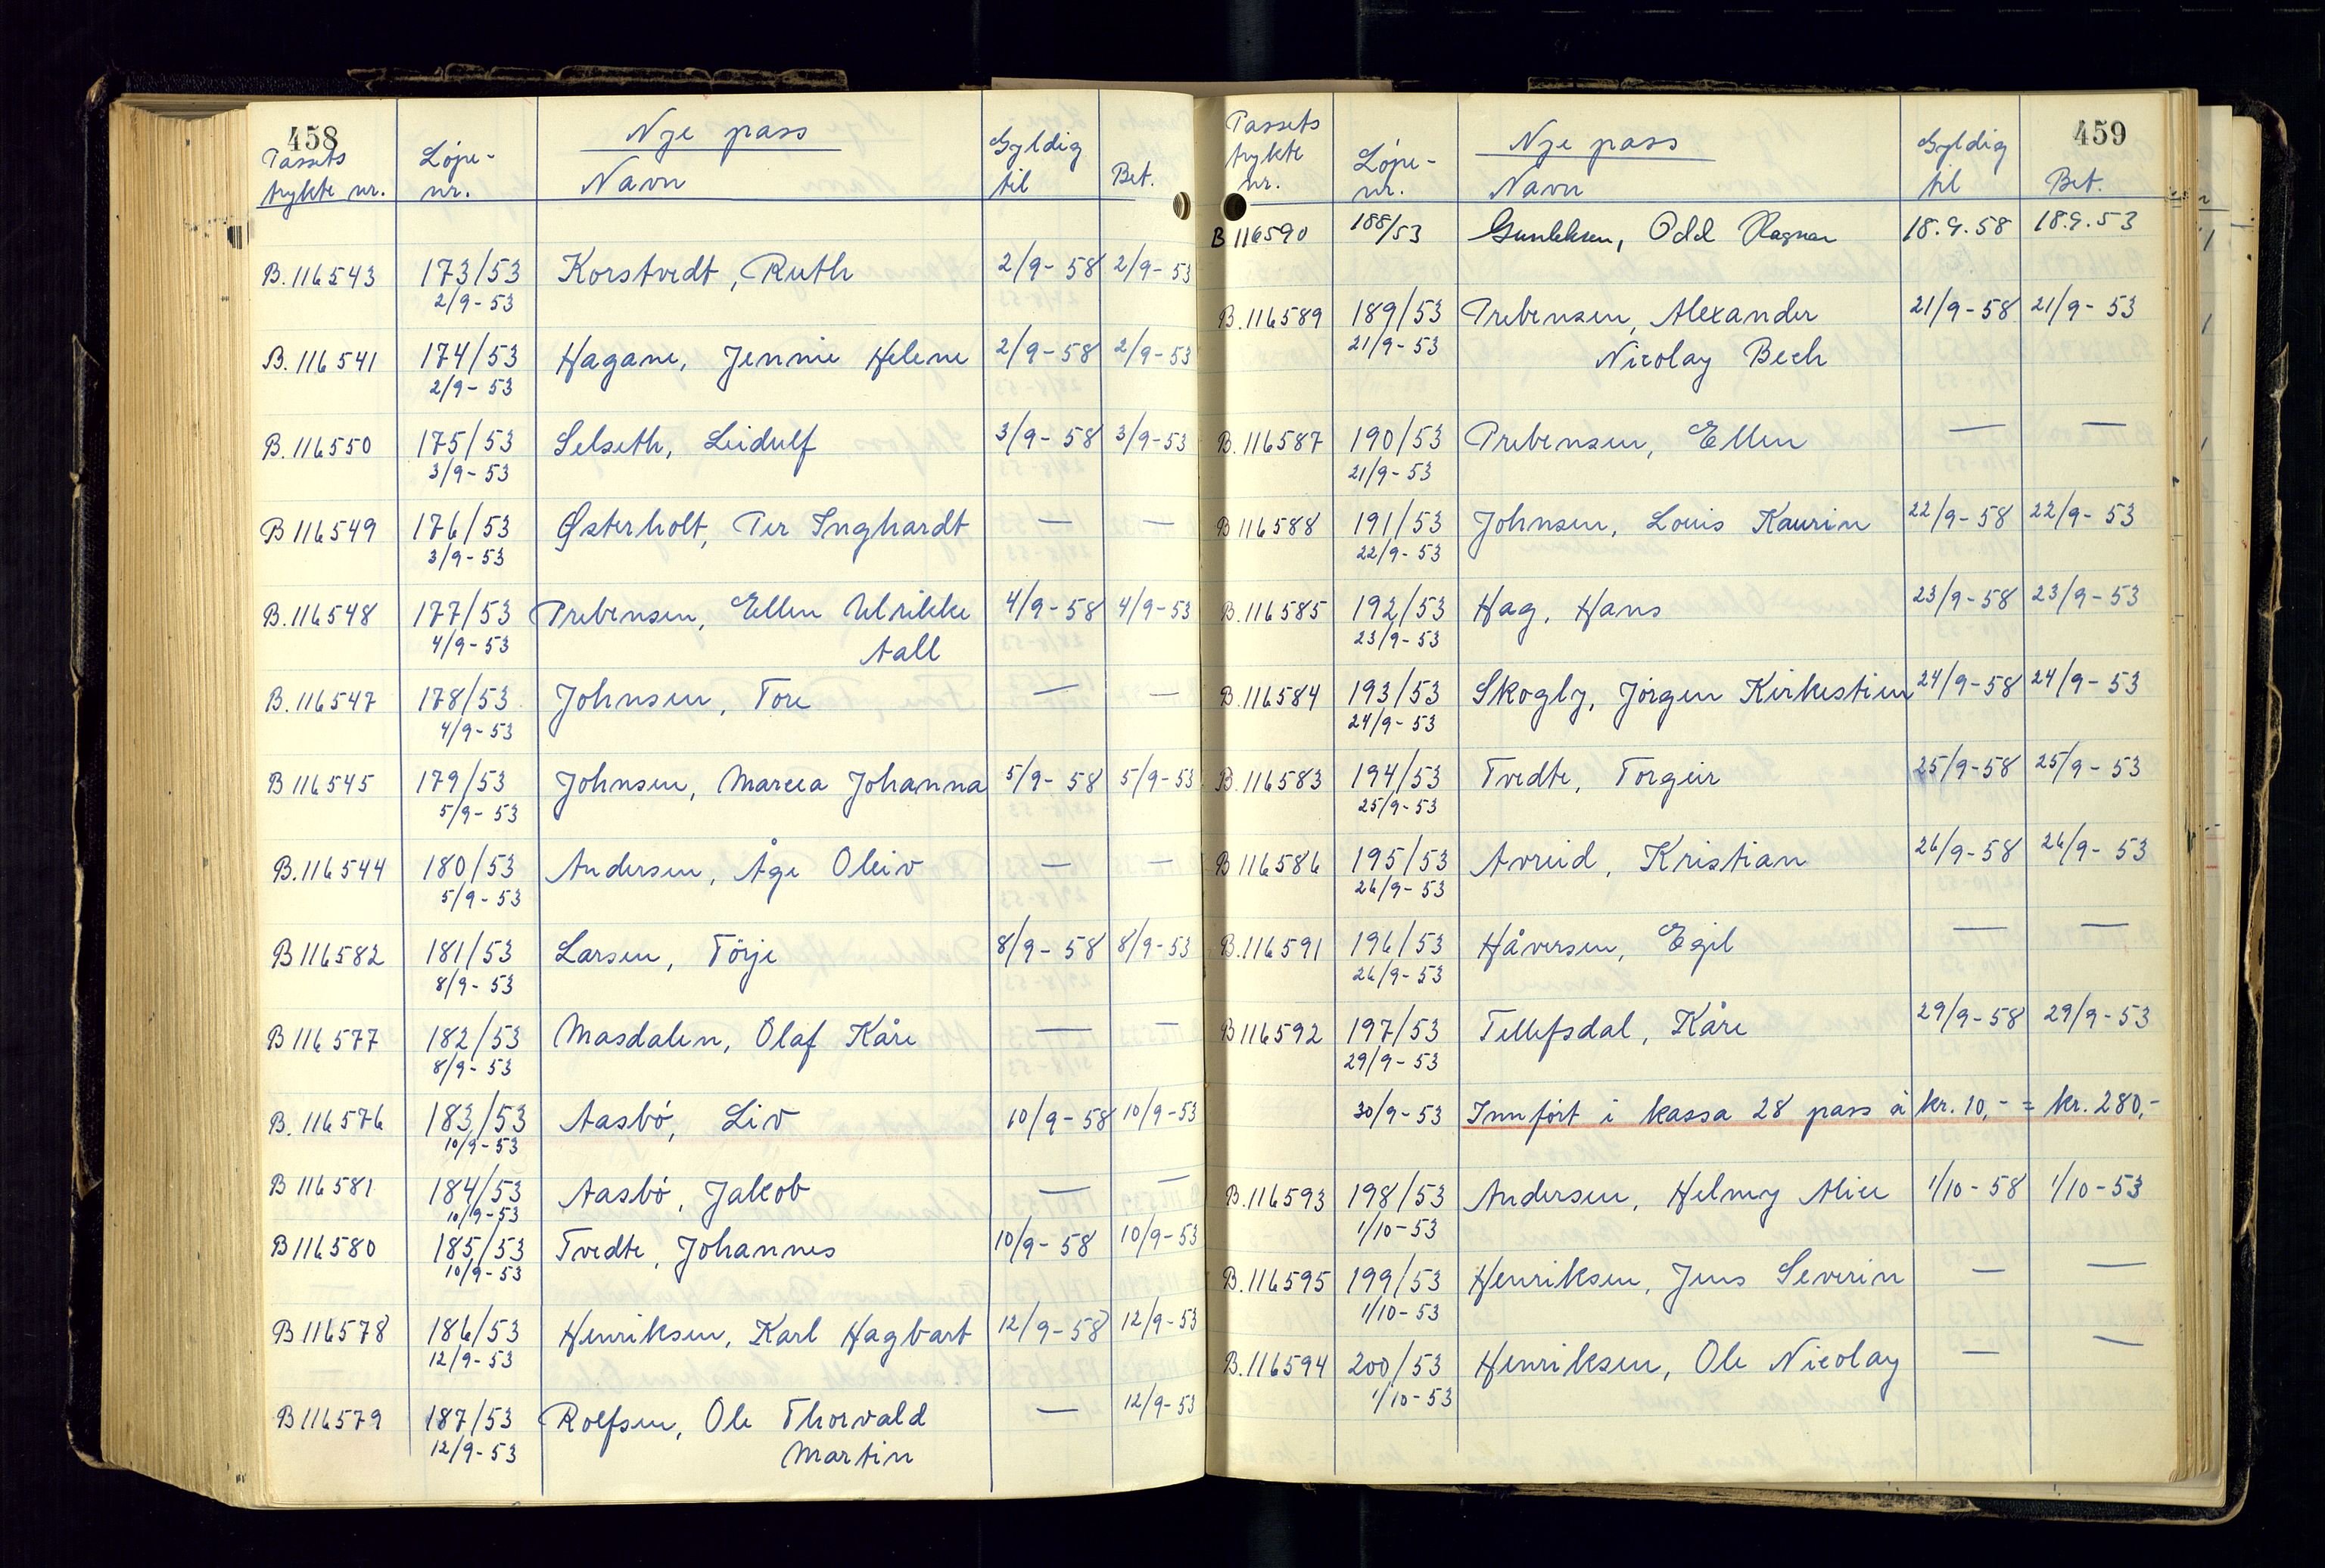 458
Nye pass
Passets trykte nr. Löpe-nr. Navn Gyldig til Bet.
B.116543 173/53 Korstvedt, Ruth 2/9-58 2/9-53
2/9-53
B.116541 174/53 Hagane, Jennie Helene 2/9-58 2/9-53
2/9-53
B.116550 175/53 Selseth, Leidulf 3/9-58 3/9-53
3/9-53
B 116549 176/53 Østerholt, Per Inghardt — —
3/9-53
B.116548 177/53 Prebensen, Ellen Ulrikke 4/9-58 4/9-53
4/9-53 Aall
B.116547 178/53 Johnsen, Tore — —
4/9-53
B 116545 179/53 Johnsen, Marcea Johanna 5/9-58 5/9-53
5/9-53
B.116544 180/53 Andersen, Åge Oleiv — —
5/9-53
B 116582 181/53 Larsen, Törje 8/9-58 8/9-53
8/9-53
B 116577 182/53 Masdalen, Olaf Kåre — —
8/9-53
B.116576 183/53 Aasbö, Liv 10/9-58 10/9-53
10/9-53
B 116581 184/53 Aasbö, Jakob — —
10/9-53
B 116580 185/53 Tvedte, Johannes 10/9-58 10/9-53
10/9-53
B 116578 186/53 Henriksen, Karl Hagbart 12/9-58 12/9-53
12/9-53
B 116579 187/53 Rolfsen, Ole Thorvald — 12/9-53
12/9-53 Martin
459
Nye pass
Passets trykte nr. Löpe-nr. Navn Gyldig til Bet.
B 116590 188/53 Odd Ragnar 18.9.58 18.9.53
B.116589 189/53 Prebensen, Alexander 21/9-58 21/9-53
21/9-53 Nicolay Bech
B.116587 190/53 Prebensen, Ellen — —
21/9-53
B 116588 191/53 Johnsen, Louis Kaurin 22/9-58 22/9-53
22/9-53
B.116585 192/53 Hag, Hans 23/9-58 23/9-53
23/9-53
B.116584 193/53 Skogly, Jörgen Kirkestien 24/9-58 24/9-53
24/9-53
B.116583 194/53 Tvedte, Torgeir 25/9-58 25/9-53
25/9-53
B 116586 195/53 Avreid, Kristian 26/9-58 26/9-53
26/9-53
B.116591 196/53 Håversen, Egil — —
26/9-53
B 116592 197/53 Tellefsdal, Kåre 29/9-58 29/9-53
29/9-53
30/9-53 Innfört i kassa 28 pass á kr. 10,- = kr. 280,-
B.116593 198/53 Andersen, Helmy Alice 1/10-58 1/10-53
1/10-53
B.116595 199/53 Henriksen, Jens Severin — —
1/10-53
B.116594 200/53 Henriksen, Ole Nicolay — —
1/10-53